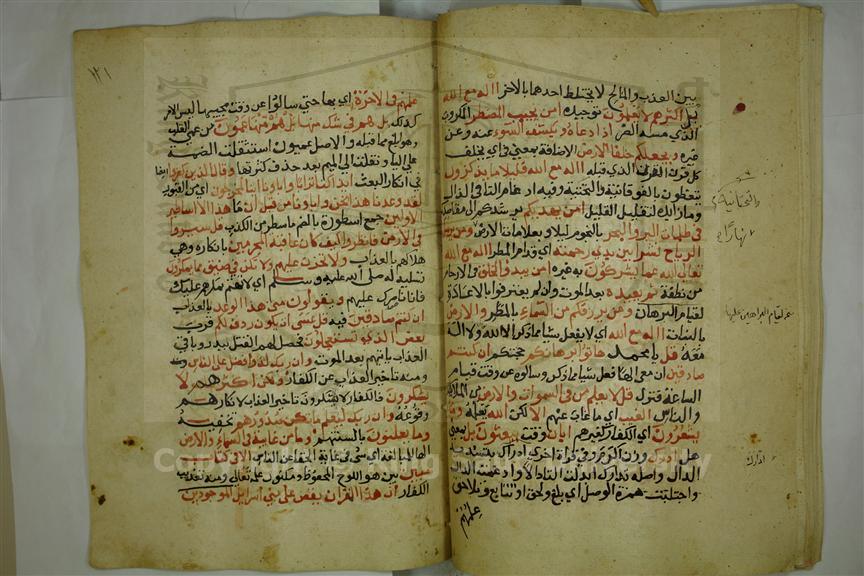 بين العذب والمالح لا يختلط احدهما بالاخر االه مع الله
بل اكثرهم لا يعلمون توحيده امن يجيب المضطر المكروب
الذي مسه الضر اذا دعاه ويكشف السوء عنه وعن
غيره ويجعلكم خلفاء الارض الاضافة بمعني في اي يخلف
كل قرن القرن الذي قبله االه مع الله قليلا ما يذكرون
يتعظون بالفوقانية والتحتية وفيه ادغام التاء في الذال
وما زائدة لتقليل القليل امن يهديكم يرشدكم الي مقاصدكم
في ظلمات البر والبحر بالنجوم ليلا وبعلامات الارض ومن يرسل
الرياح نشرا بين يدي رحمته اي قدام المطر االه مع الله
تعالي الله عما يشركون به غيره امن يبدو الخلق في الارحام
من نطفة ثم يعيده بعد الموت وان لم يعترفوا بالاعادة
لقيام البرهان ومن يرزقكم من السماء بالمطر والارض
بالنبات االه مع الله اي لا يفعل شيا مما ذكر الا الله ولا اله
معه قل يا محمد هاتوا برهانكم حجتكم ان كنتم
صادقين ان معي الها فعل شيا مما ذكر وسالوه عن وقت قيام
الساعة فنزل قل لا يعلم من في السموات والارض من الملائكة
والناس الغيب اي ما غاب عنهم الا لكن الله يعلمه وما
يشعرون اي الكفار كغيرهم ايان وقت يبعثون بل بمعني
هل ادرك وزن اكرم وفي قراءة اخري ادارك بتشديد
الدال واصله تدارك ابدلت التاء دالا وادغمت في الدال
واجتلبت همزة الوصل اي بلغ ولحق او تتابع وتلاحق
علمهم
والتحتانية
نهارا
لقيام البراهين عليها
ادارك
١٢١
علمهم في الاخرة اي بها حتي سالوا عن وقت مجييها ليس الامر
كذلك بل هم في شك منها بل هم منها عمون من عمي القلب
وهو ابلغ مما قبله والاصل عميون استثقلت الضمة
علي الياء ونقلت الي الميم بعد حذف كسرتها وقال الذين كفروا ايضا
في انكار البعث ايذا كنا ترابا واباونا اينا لمخرجون اي من القبور
لقد وعدنا هذا نحن واباونا من قبل ان ما هذا الا اساطير
الاولين جمع اسطورة بالضم ما سطر من الكذب قل سيروا
في الارض فانظروا كيف كان عاقبة المجرمين بانكاره وهي
هلاكهم بالعذاب ولا تحزن عليهم ولا تكن في ضيق مما يمكرون
تسلية له صلي الله عليه وسلم اي لا تهتم بمكرهم عليك
فانا ناصرك عليهم ويقولون متي هذا الوعد بالعذاب
ان كنتم صادقين فيه قل عسي ان يكون ردف لكم قرب
بعض الذي تستعجلون فحصل لهم القتل ببدر وباقي
العذاب ياتيهم بعد الموت وان ربك لذو فضل علي الناس
ومنه تاخير العذاب عن الكفار ولكن اكثرهم لا
يشكرون فالكفار لا يشكرون تاخير العذاب لانكارهم
وقوعه وان ربك ليعلم ما تكن صدورهم تخفيه
وما يعلنون بالسنتهم وما من غايبة في السماء والارض
الهاء للمبالغة اي شي في غاية الخفاء عن الناس الا في كتاب
مبين بين هو اللوح المحفوظ ومكنون علمه تعالي ومنه تعذيب
الكفار ان هذا القران يقص علي بني اسرايل الموجودين